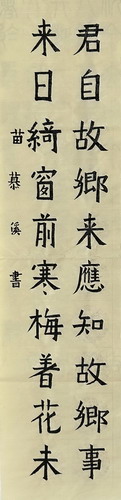 君自故鄉来應知故鄉事
来日綺窗前寒梅着花未
苗慕溪書